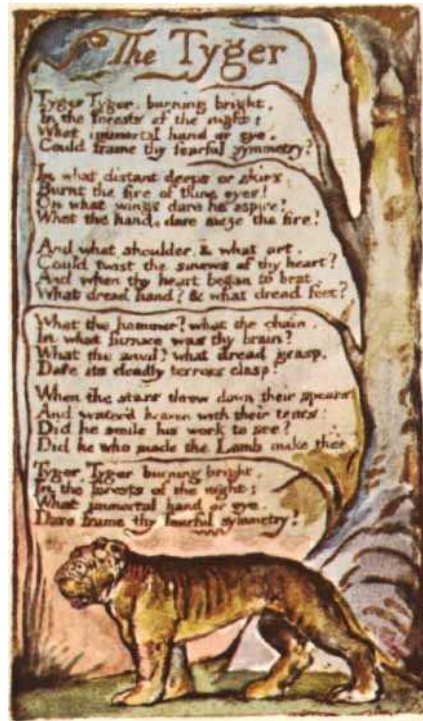 The Tyger
Tyger Tyger. burning bright,
In the forests of the night;
What immortal hand or eye,
Could frame thy fearful symmetry?
In what distant deeps or skies,
Burnt the fire of thine eyes!
On what wings dare he aspire?
What the hand, dare sieze the fire?
And what shoulder, & what art,
Could twist the sinews of thy heart?
And when thy heart began to beat,
What dread hand? & what dread feet?
What the hammer? what the chain,
In what furnace was thy brain?
What the anvil? what dread grasp,
Dare its deadly terrors clasp?
When the stars threw down their spears
And water'd heaven with their tears:
Did he smile his work to see?
Did he who made the Lamb make thee
Tyger Tyger burning bright,
In the forests of the night:
What immortal hand or eye,
Dare frame thy fearful symmetry?